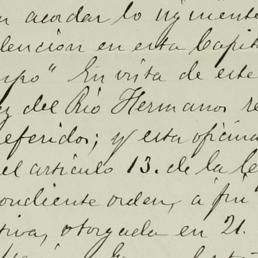 acordar lo siguiente
dencion en esta Capit
mpo" En vista de este
ez del Rio Hermanos re
eferidos; y esta oficina
el articulo 13. de la le
ondiente orden, a fin
tiva, otorgada en 21.